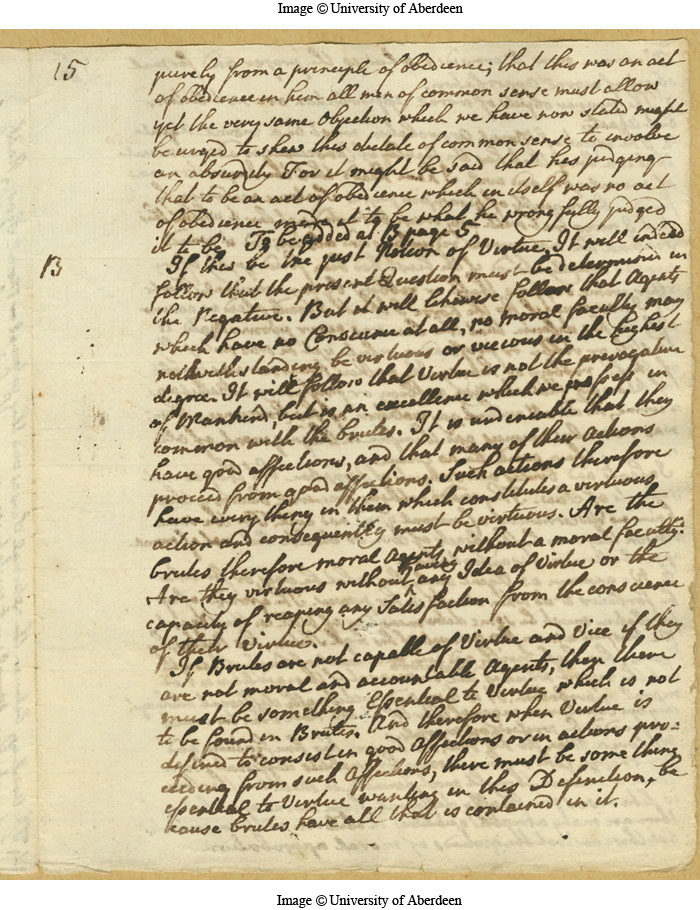 Image © University of Aberdeen
15
purely from a principle of obedience; that this was an act
of obedience in him all men of common sense must allow
yet the very same Objection which we have now stated might
be urged to shew this dictate of common sense to involve
an absurdity For it might be said that his judging
that to be an act of obedience which in itself was no act
of obedience made it to be what he wrongfully judged
it to be To be added at B page 5
B
If this be the just Notion of Virtue, It will indeed
follow that the present Question must be determined in
the Negative. But it will likewise follow that Agents
which have no Conscience at all, no moral faculty may
nothwithstanding be virtuous or vicious in the highest
degree. It will follow that Virtue is not the prerogative
of Mankind, but is an excellence which we possess in
common with the brutes. It is undeniable that they
have good affections, and that many of their actions
proceed from good affections. Such actions therefore
have every thing in them which constitutes a virtuous
action and consequently must be virtuous. Are the
brutes therefore moral Agents without a moral faculty.
Are they virtuous without having any Idea of Virtue or the
capacity of reaping any Satisfaction from the conscience
of their Virtue.
If Brutes are not capable of Virtue and Vice if they
are not moral and accountable Agents, then there
must be something Essential to Virtue which is not
to be found in Brutes. And therefore when Virtue is
defined to consist in good Affections or in actions pro=
ceeding from such Affections, there must be some thing
essential to Virtue wanting in this Definition, be
cause brutes have all that is contained in it.
Image © University of Aberdeen